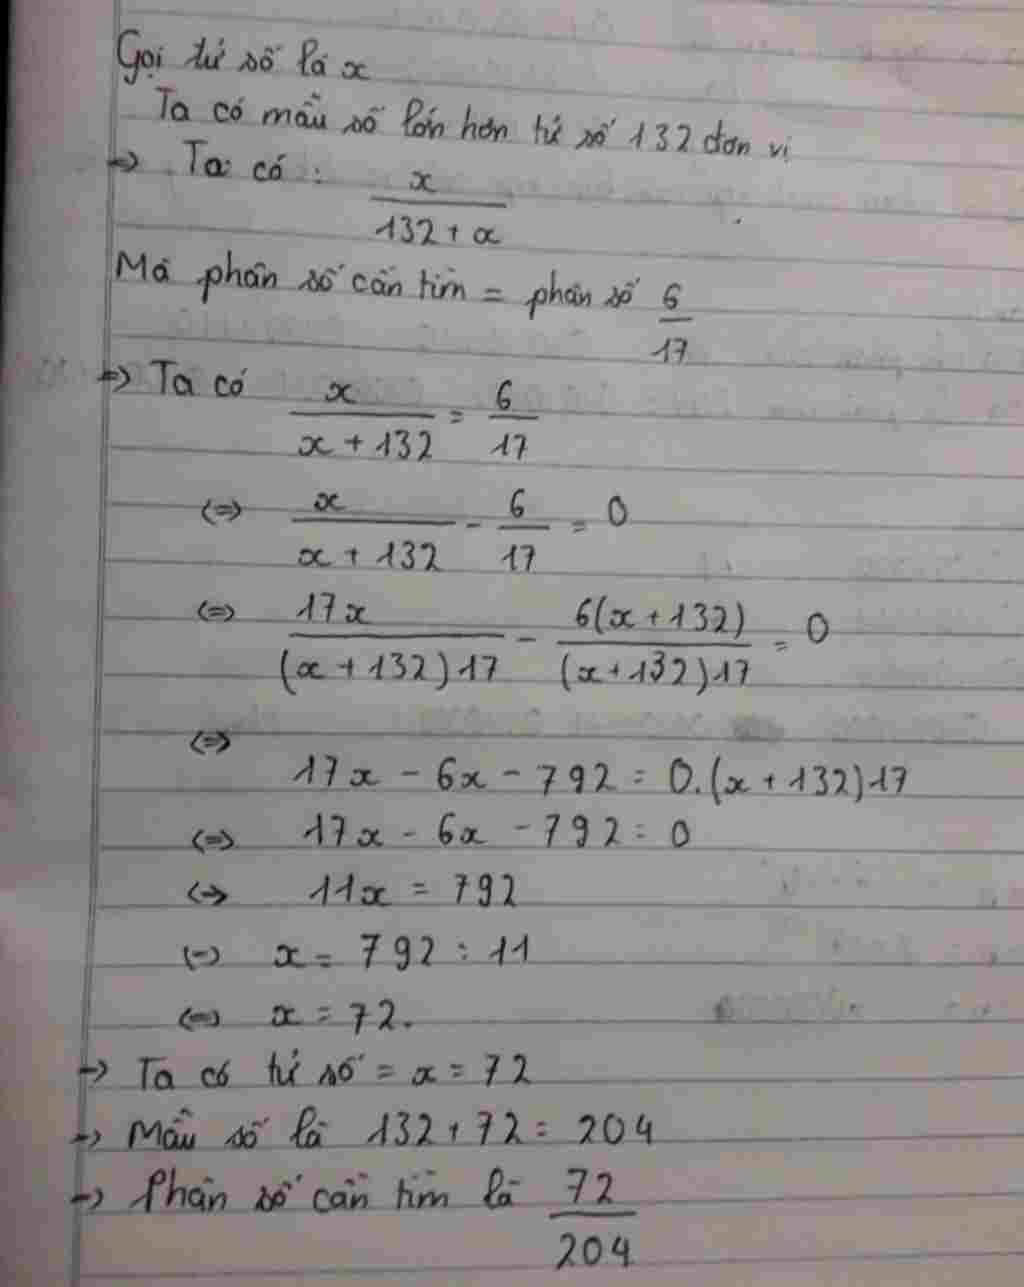 Gọi tử số là x
Ta có mẫu số lớn hơn tử số 132 đơn vị
=> Ta có : x / 132 + x
Mà phân số cần tìm = phân số 6/17
=> Ta có x / x + 132 = 6/17
<=> x / x + 132 - 6/17 = 0
<=> 17x / (x + 132)17 - 6(x + 132) / (x + 132)17 = 0
<=> 17x - 6x - 792 = 0.(x + 132)17
<=> 17x - 6x - 792 = 0
<=> 11x = 792
<=> x = 792 : 11
<=> x = 72.
-> Ta có tử số = x = 72
-> Mẫu số là 132 + 72 = 204
-> Phân số cần tìm là 72/204